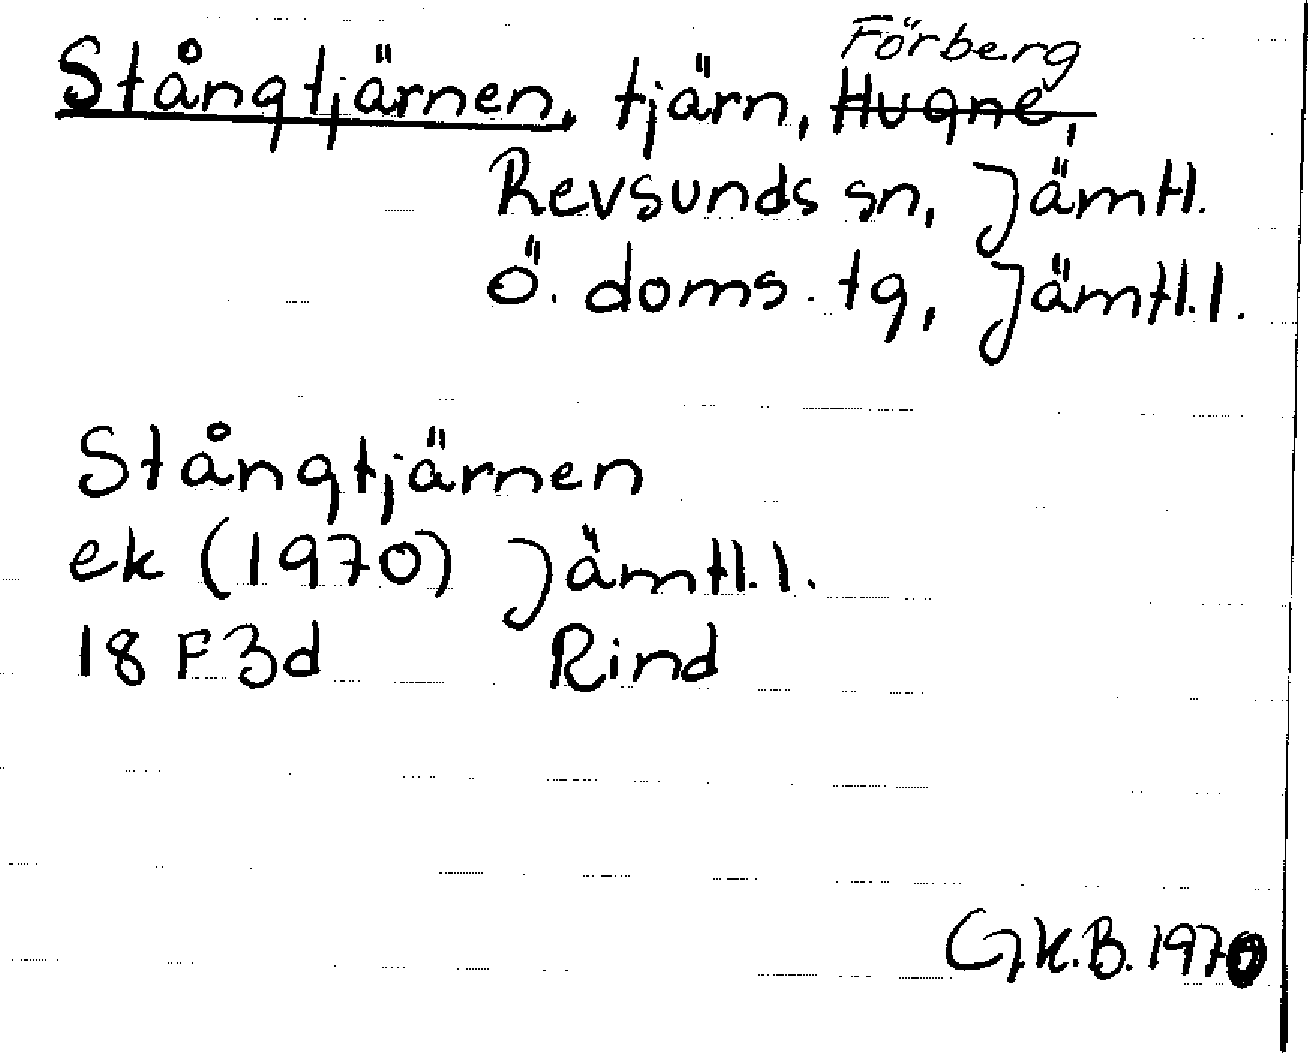 Förberg
Stångtjärnen, tjärn, Hugne,
Revsunds sn, Jämtl.
Ö. doms. tg, Jämtl.l.
Stångtjärnen
ek (1970) Jämtl.l.
18 F 3d Rind
G.K.B. 1970